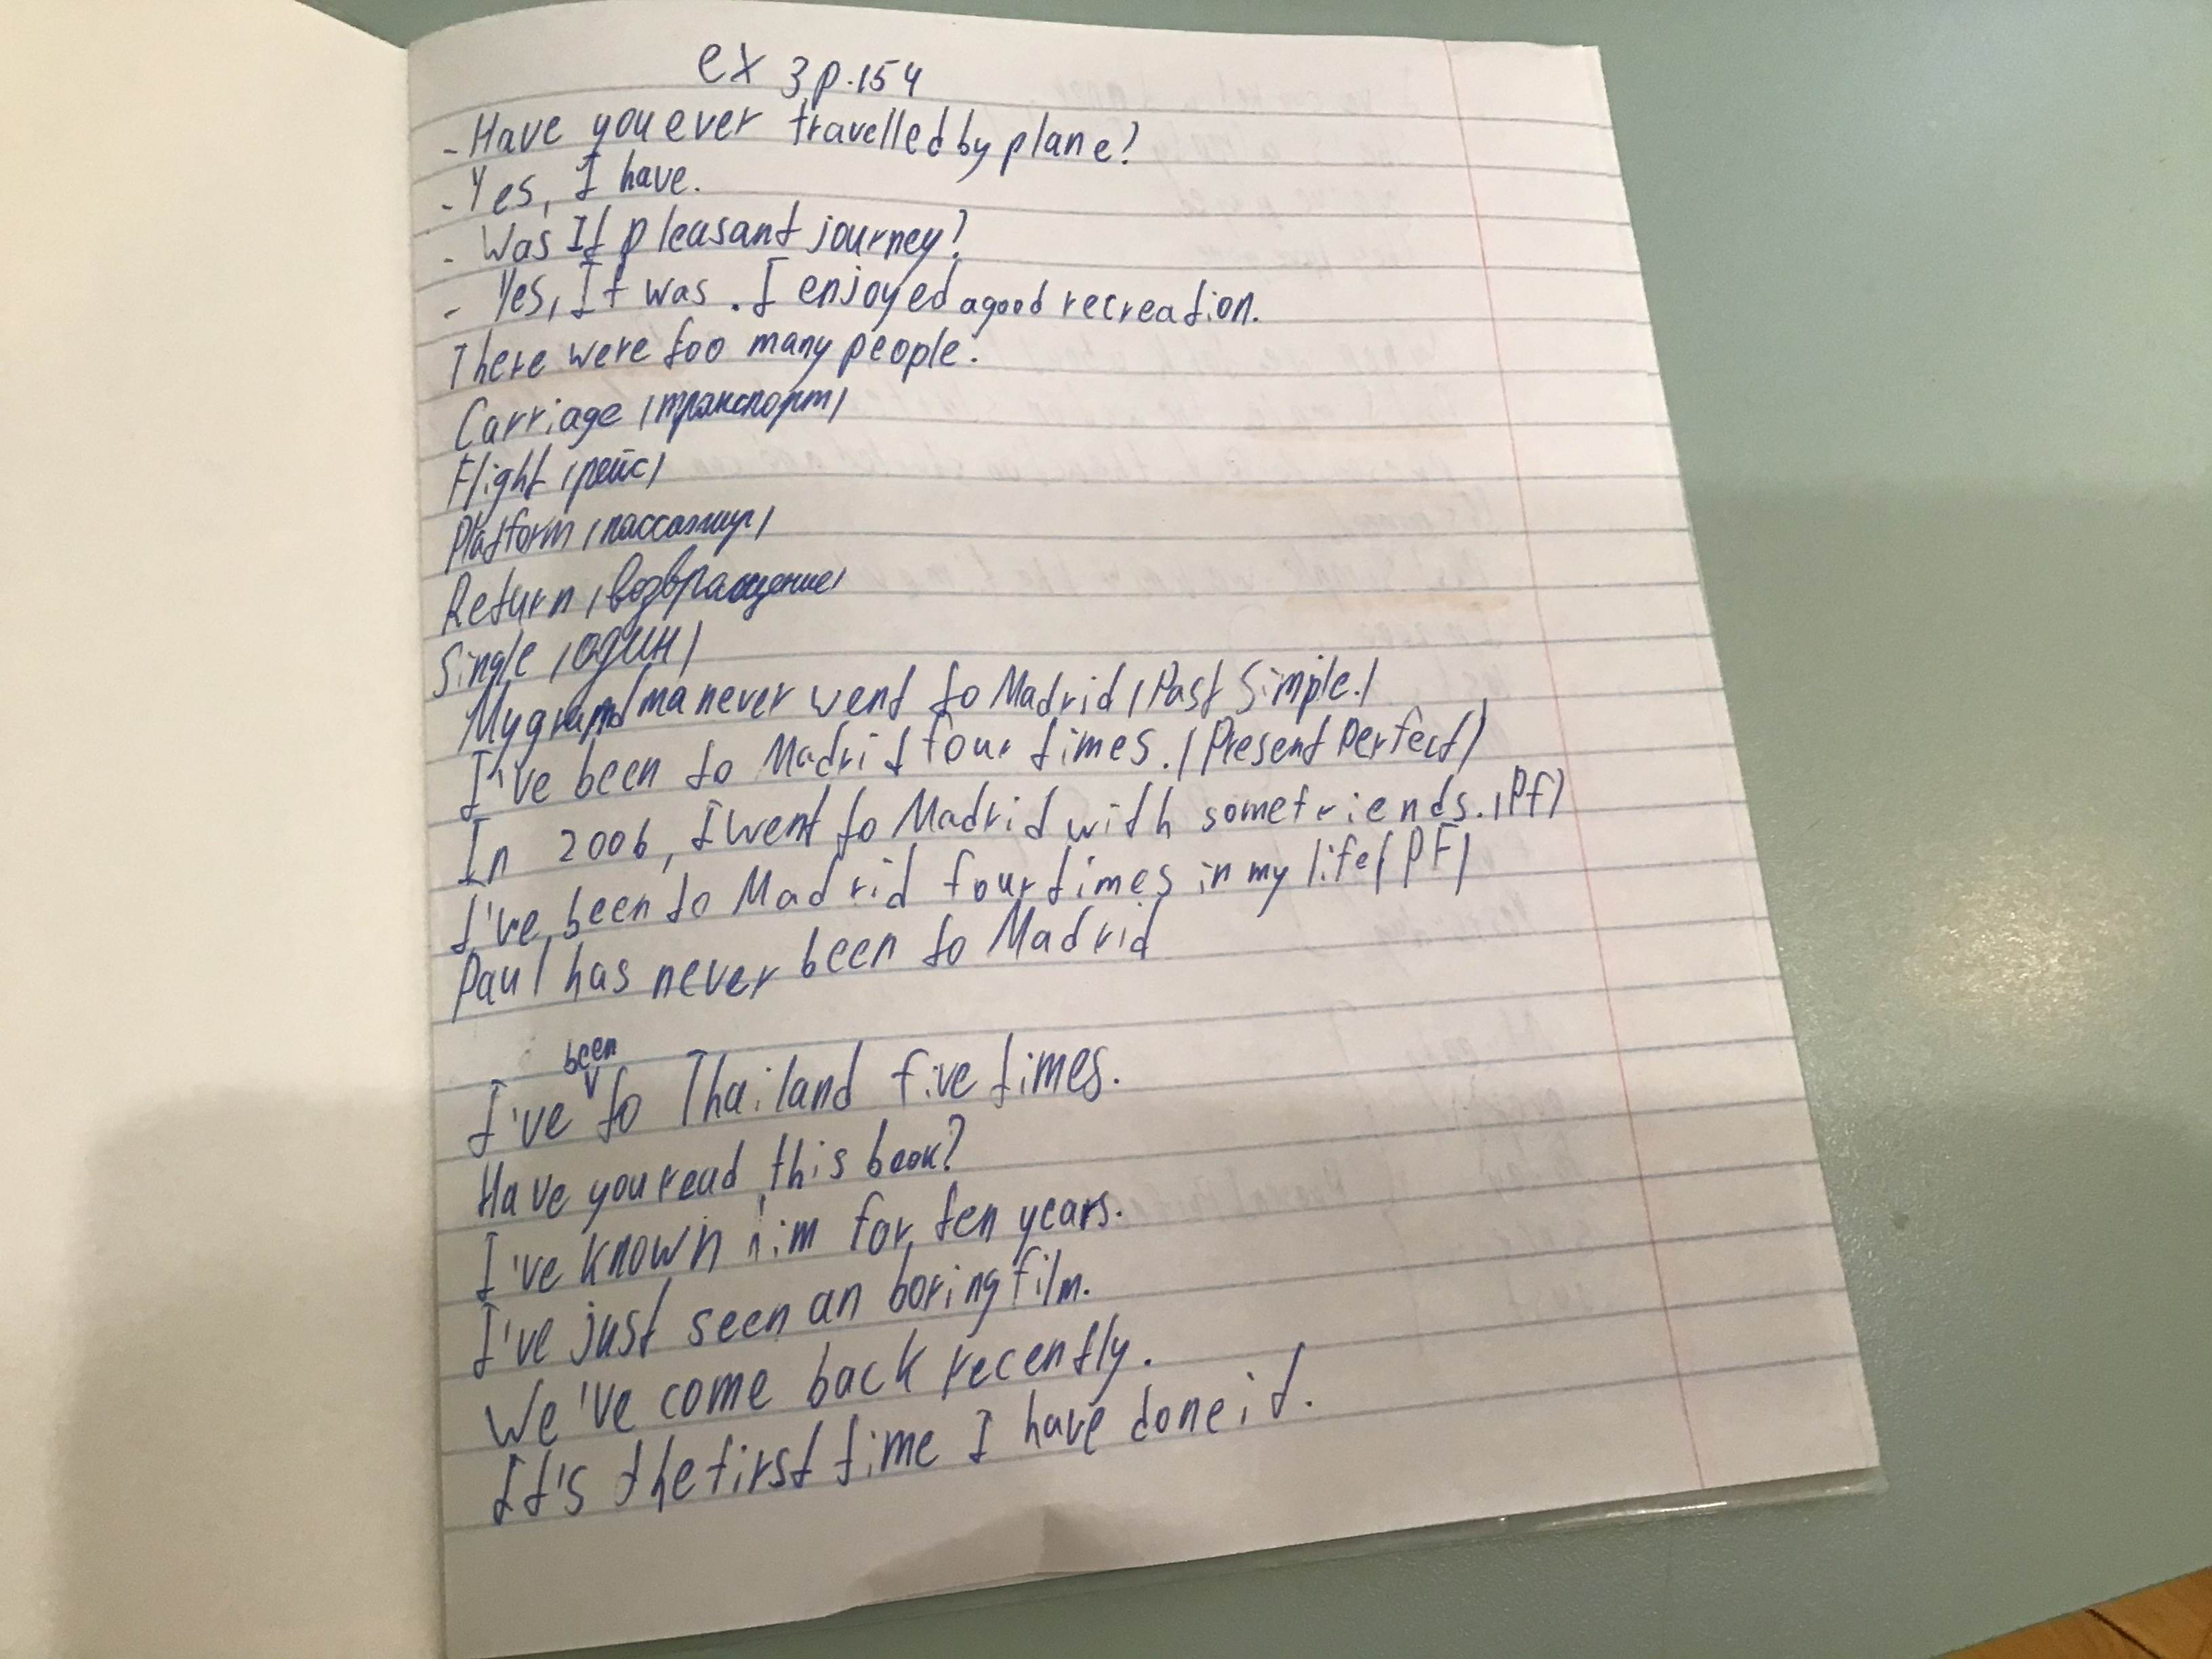 ex 3 p.154
- Have you ever travelled by plane?
- Yes, I have.
- Was It pleasant journey?
- Yes, It was. I enjoyed a good recreation.
There were too many people.
Carriage (транспорт)
Flight (рейс)
Platform (пассажир)
Return (возвращение)
Single (один)
My grandma never went to Madrid (Past Simple.)
I've been to Madrid four times. (Present Perfect)
In 2006, I went to Madrid with some friends. (Pf)
I've been to Madrid four times in my life (PF)
Paul has never been to Madrid
been
I've to Thailand five times.
Have you read this book?
I've known him for ten years.
I've just seen an boring film.
We've come back recently.
It's the first time I have done it.